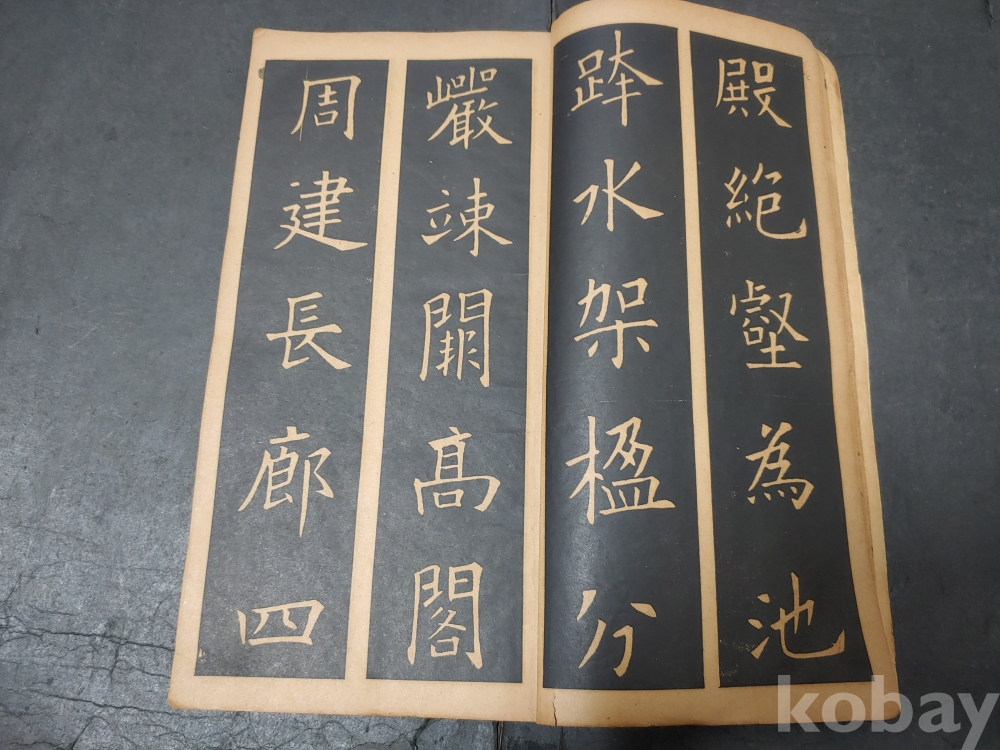 殿絶壑為池
跨水架楹分
巖竦闕高閣
周建長廊四
kobay